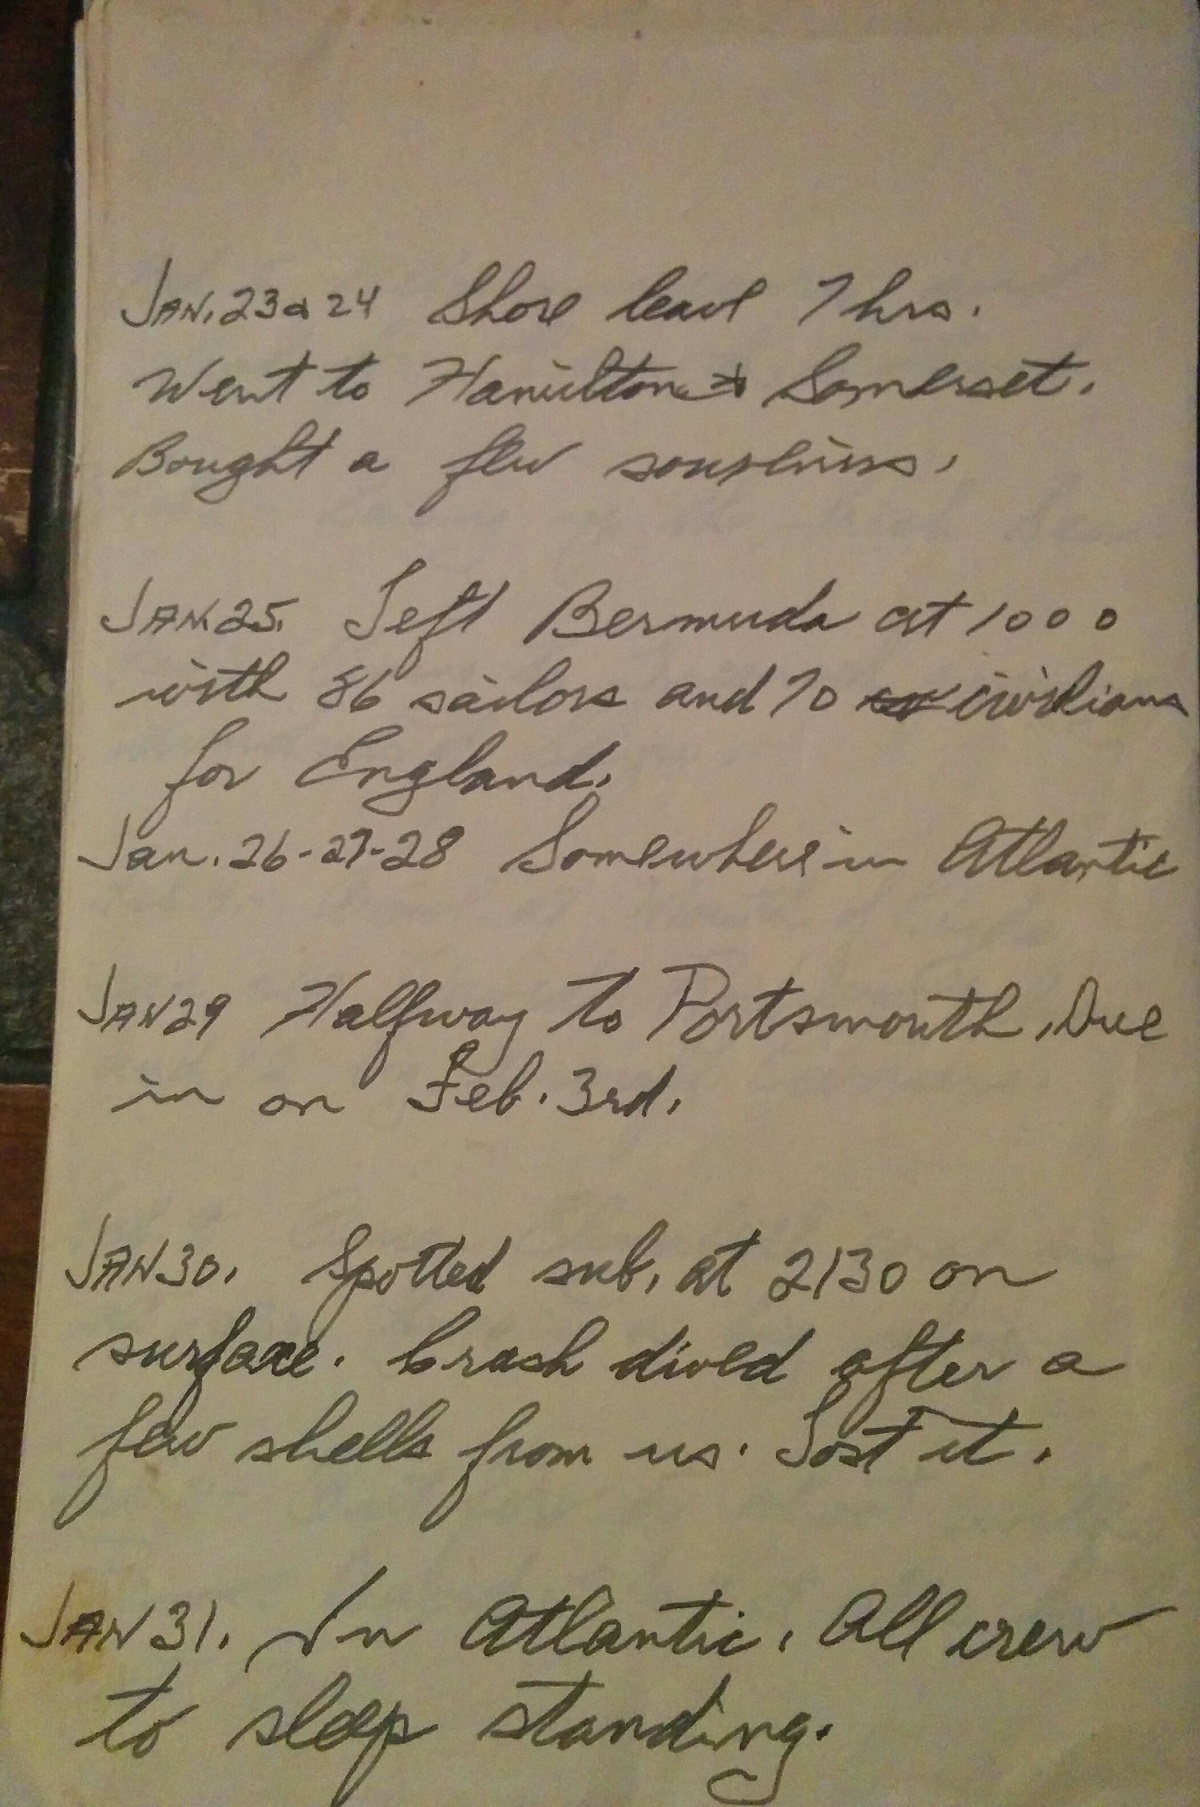 JAN. 23 & 24 Shore leave 7 hrs.
Went to Hamilton & Somerset.
Bought a few souveiners.
JAN. 25. Left Bermuda at 1000
with 86 sailors and 70 civilians
for England.
Jan. 26-27-28 Somewhere in Atlantic
JAN 29 Halfway to Portsmouth. Due
in on Feb. 3rd.
JAN 30. Spotted sub. at 2130 on
surface. Crash dived after a
few shells from us. Lost it.
JAN 31. In Atlantic. All crew
to sleep standing.